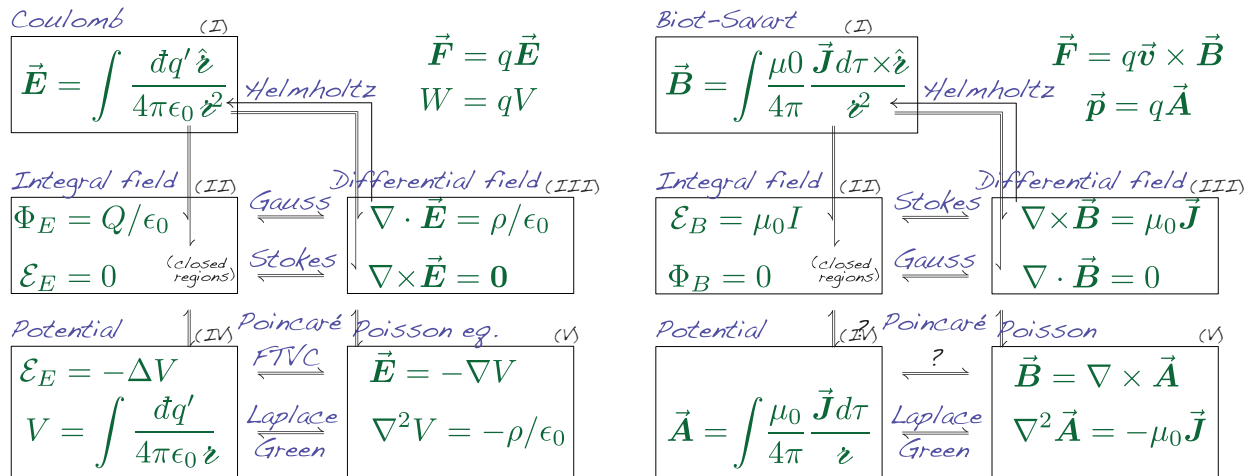 Coulomb (I)
E⃗ = ∫ đq′ 𝓇̂ / 4πϵ₀ 𝓇²
F⃗ = qE⃗
W = qV
Helmholtz
Integral field (II)
Φ_E = Q/ϵ₀
ℰ_E = 0
(closed
regions)
Gauss
Stokes
Differential field (III)
∇ · E⃗ = ρ/ϵ₀
∇×E⃗ = 0
Potential (IV)
ℰ_E = −ΔV
V = ∫ đq′ / 4πϵ₀ 𝓇
Poincaré
FTVC
Laplace
Green
Poisson eq. (V)
E⃗ = −∇V
∇²V = −ρ/ϵ₀
Biot-Savart (I)
B⃗ = ∫ μ0/4π J⃗dτ×𝓇̂ / 𝓇²
F⃗ = qv⃗ × B⃗
p⃗ = qA⃗
Helmholtz
Integral field (II)
ℰ_B = μ₀I
Φ_B = 0
(closed
regions)
Stokes
Gauss
Differential field (III)
∇×B⃗ = μ₀J⃗
∇ · B⃗ = 0
Potential ? (IV)
A⃗ = ∫ μ₀/4π J⃗dτ / 𝓇
Poincaré
?
Laplace
Green
Poisson (V)
B⃗ = ∇ × A⃗
∇²A⃗ = −μ₀J⃗